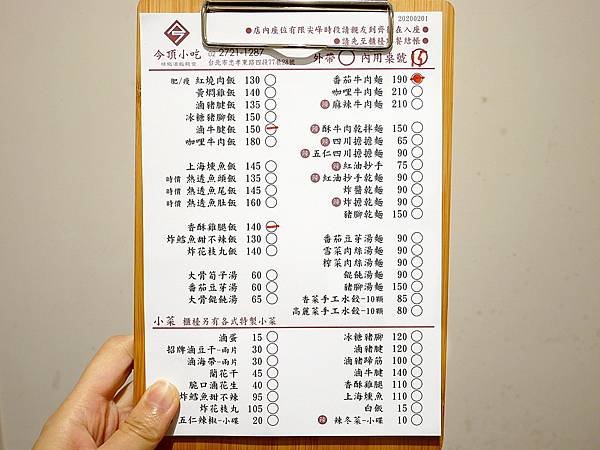 20200201
●店內座位有限尖峰時段請親友到齊再入座●
●請先至櫃檯點餐結帳●
今頂小吃
2721-1287
台北市忠孝東路四段77巷24號
外帶 內用桌號
肥/瘦 紅燒肉飯 130
黃燜雞飯 140
滷豬腱飯 135
冰糖豬腳飯 150
滷牛腱飯 150
咖哩牛肉飯 180
上海燻魚飯 145
時價 熬透魚頭飯 135
時價 熬透魚尾飯 145
時價 熬透魚肚飯 160
香酥雞腿飯 140
炸鱈魚甜不辣飯 130
炸花枝丸飯 140
大骨筍子湯 60
番茄豆芽湯 60
大骨餛飩湯 65
番茄牛肉麵 190
咖哩牛肉麵 210
辣 麻辣牛肉麵 210
辣 酥牛肉乾拌麵 150
辣 四川擔擔麵 65
辣 五仁四川擔擔麵 90
辣 紅油抄手 75
辣 紅油抄手乾麵 90
炸醬乾麵 90
辣 炸擔乾麵 90
豬腳乾麵 150
番茄豆芽湯麵 90
雪菜肉絲湯麵 90
榨菜肉絲湯麵 90
餛飩湯麵 90
豬腳湯麵 150
香菜手工水餃-10顆 85
高麗菜手工水餃-10顆 80
小菜 櫃檯另有各式特製小菜
滷蛋 15
招牌滷豆干-兩片 30
滷海帶-兩片 30
蘭花干 45
脆口滷花生 40
炸鱈魚甜不辣 95
炸花枝丸 105
五仁辣椒-小碟 20
冰糖豬腳 120
滷豬腱 120
滷豬蹄筋 100
滷牛腱 140
香酥雞腿 110
上海燻魚 110
白飯 15
辣 辣冬菜-小碟 10